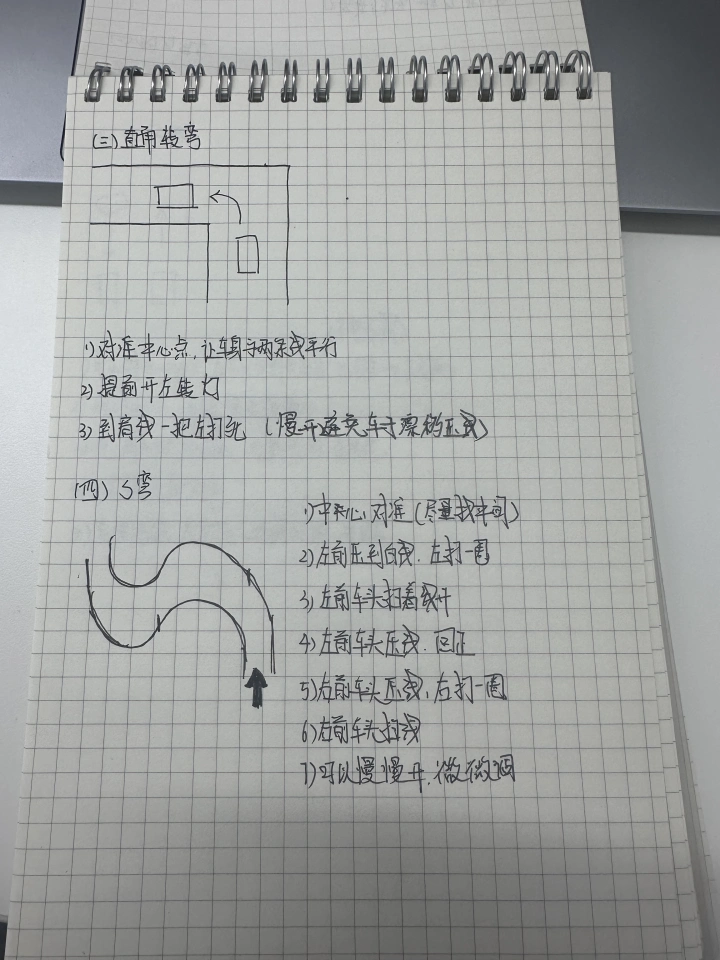 (三)直角转弯
1)对准中心点,让车身与两条线平行
2)提前开左转灯
3)到着线一把左打死 (慢开避免车子乘的压线)
(四) S弯
1)中心对准(尽量找中间)
2)左前压到白线.左打一圈
3)左前车头扫着线开
4)左前车头压线.回正
5)右前车头压线,右打一圈
6)右前车头扫线
7)可以慢慢开.微微调